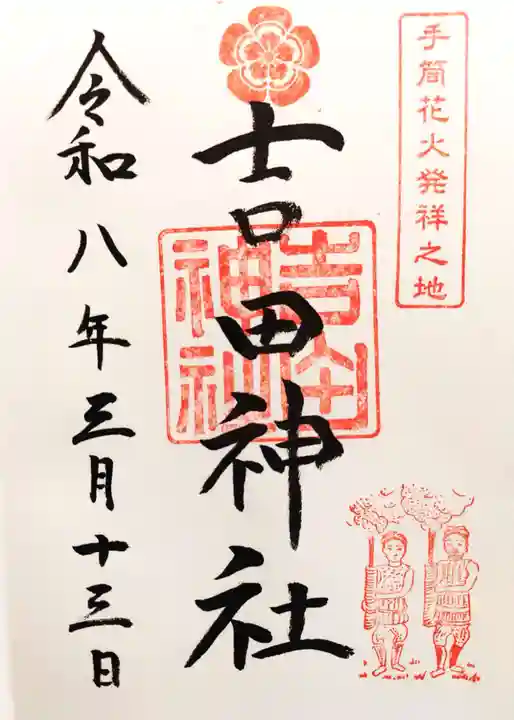 手筒花火発祥之地
吉田神社
吉田神社
令和八年三月十三日